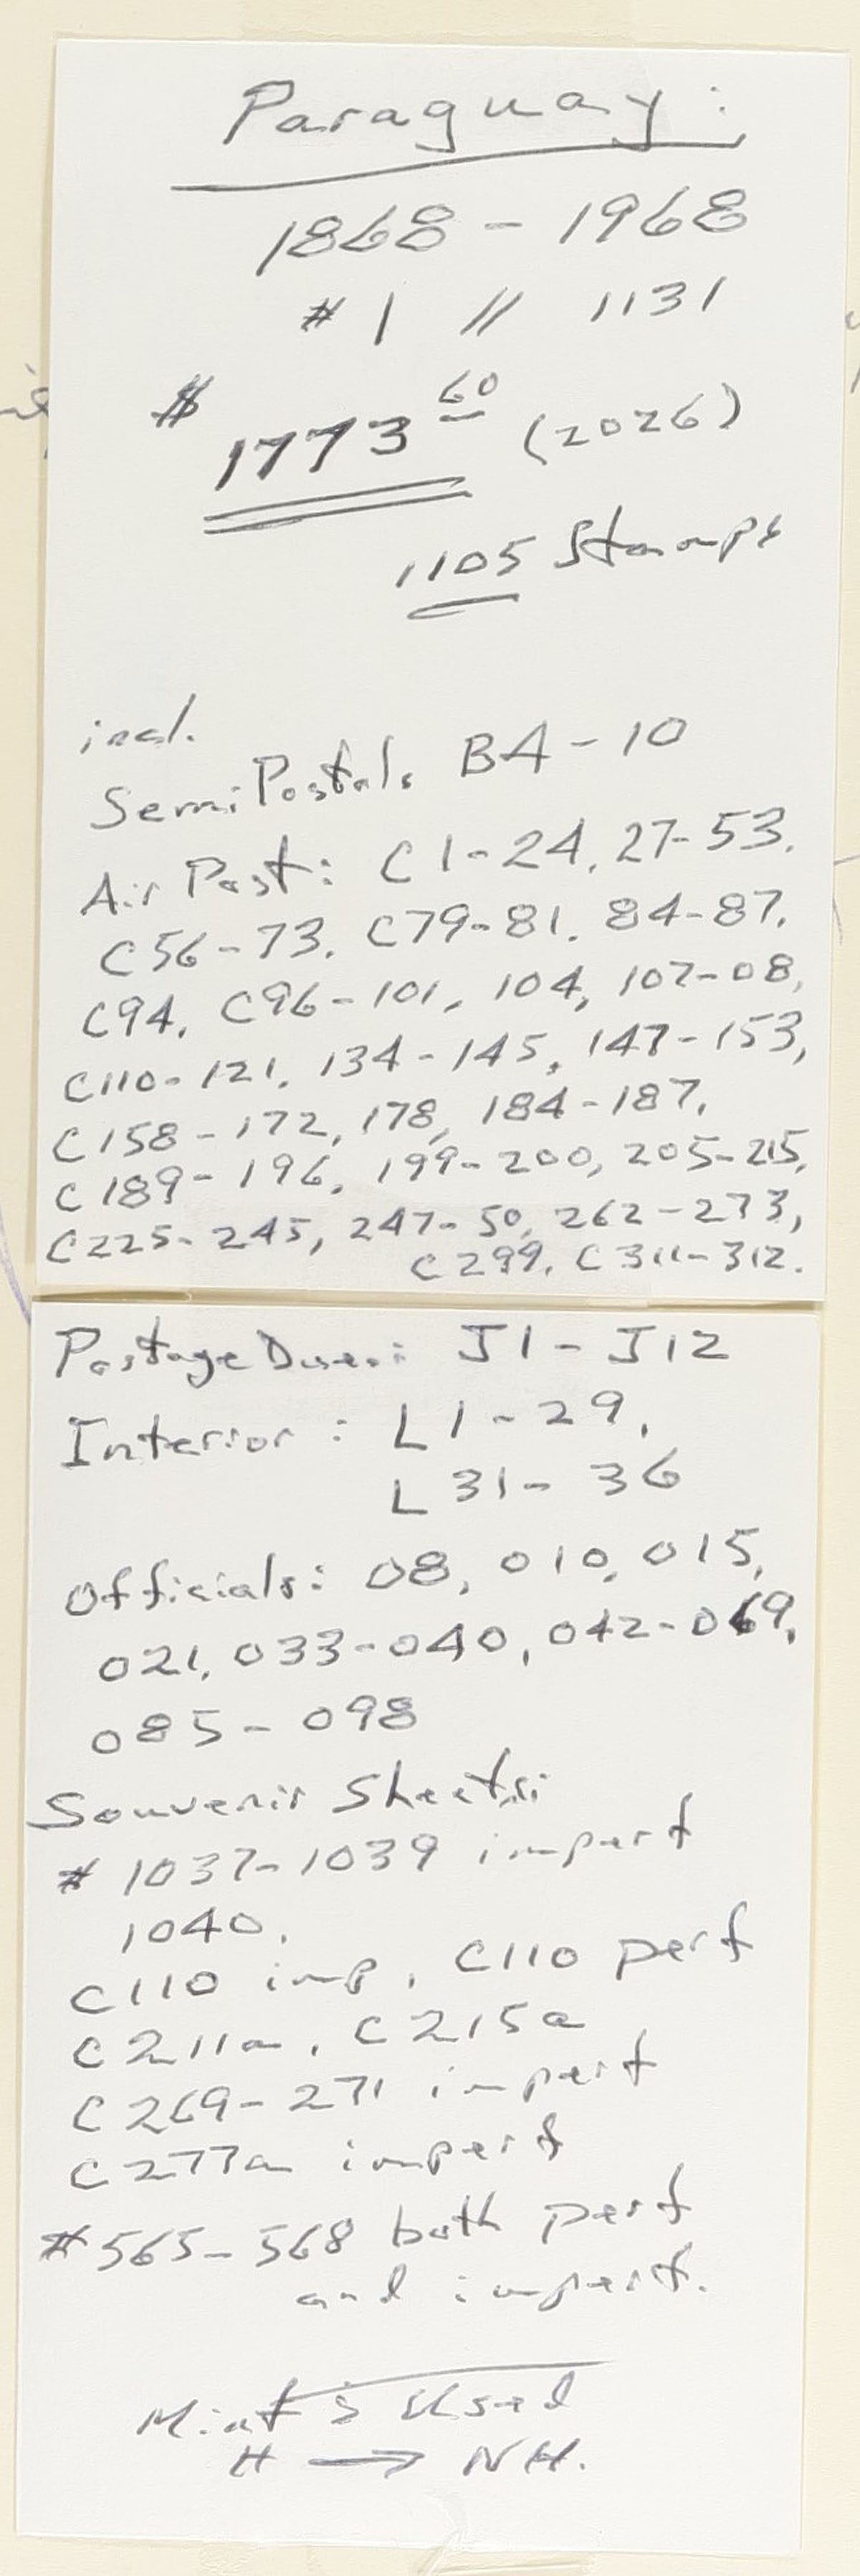 Paraguay:
1868 - 1968
# 1 // 1131
$ 1773 60 (2026)
1105 Stamps
incl.
SemiPostals B4-10
Air Post: C1-24, 27-53,
C56-73, C79-81, 84-87,
C94, C96-101, 104, 107-08,
C110-121, 134-145, 147-153,
C158-172, 178, 184-187,
C189-196, 199-200, 205-215,
C225-245, 247-50, 262-273,
C299, C311-312.
Postage Dues: J1-J12
Interior: L1-29,
L31-36
Officials: O8, O10, O15,
O21, O33-O40, O42-O69,
O85-O98
Souvenir Sheets:
# 1037-1039 imperf
1040,
C110 imp, C110 perf
C211a, C215a
C269-271 imperf
C277a imperf
#565-568 both perf
and imperf.
Mint & Used
H → NH.